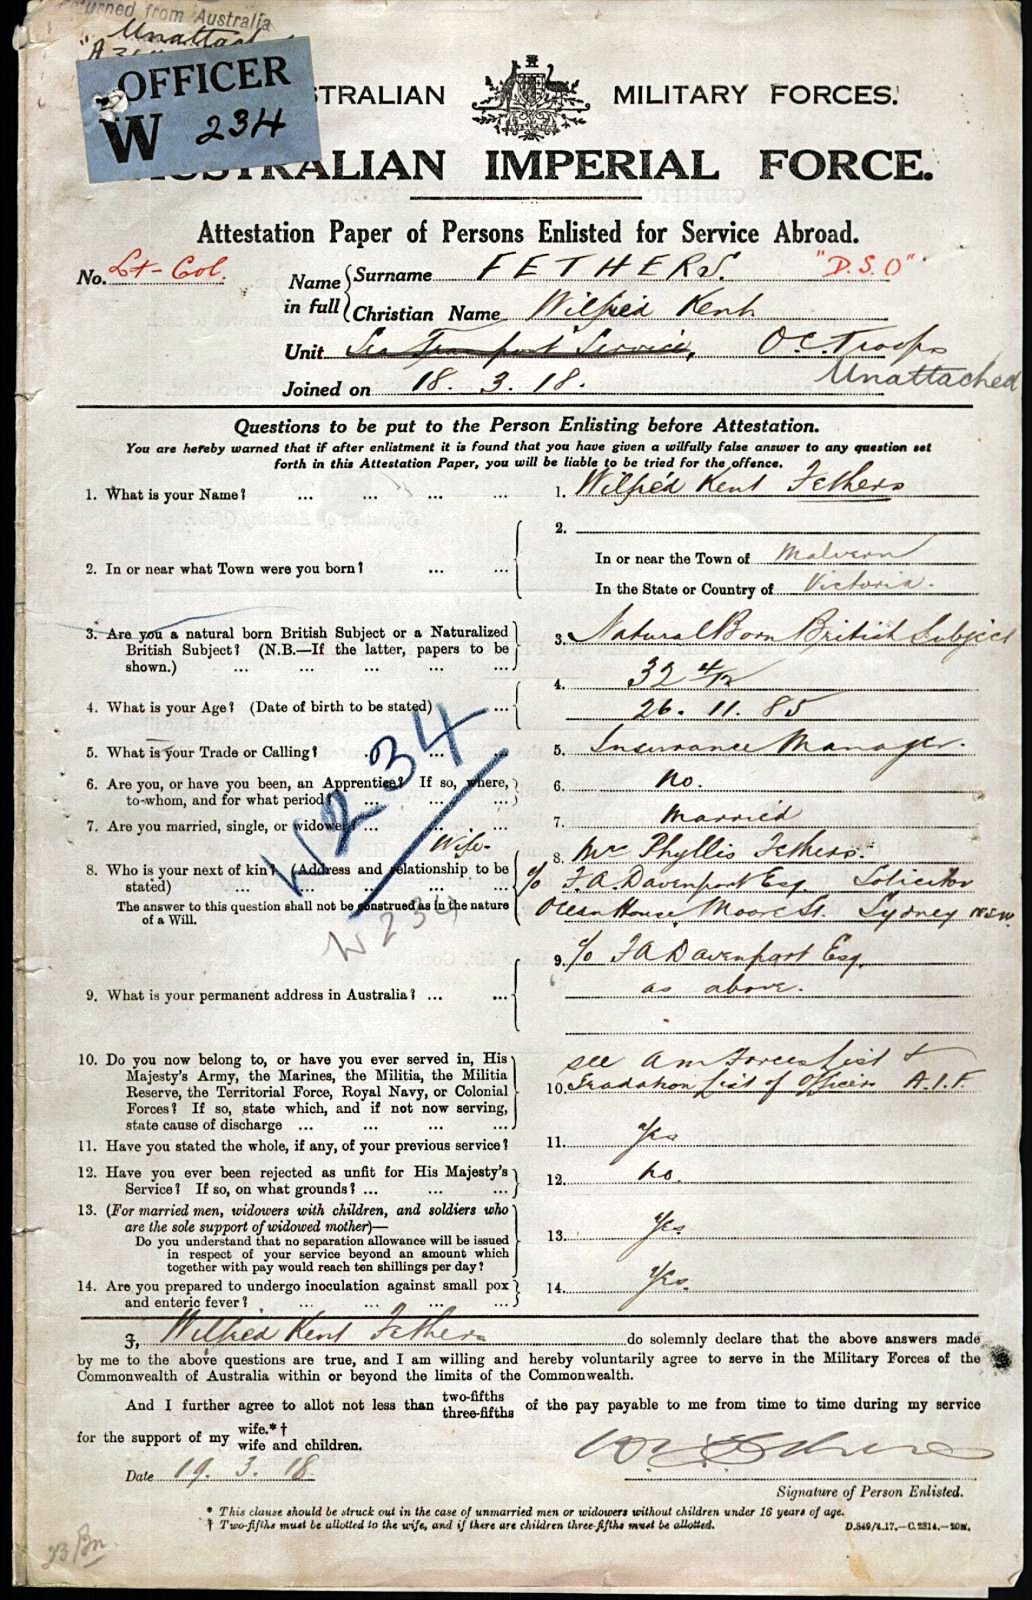 Returned from Australia
"Unattached
OFFICER
W 234
AUSTRALIAN MILITARY FORCES.
AUSTRALIAN IMPERIAL FORCE.
Attestation Paper of Persons Enlisted for Service Abroad.
No. Lt-Col.
Name in full { Surname FETHERS. "D.S.O"
Christian Name Wilfrid Kent
Unit Sea Transport Service, O.C. Troops
Unattached
Joined on 18. 3. 18.
Questions to be put to the Person Enlisting before Attestation.
You are hereby warned that if after enlistment it is found that you have given a wilfully false answer to any question set
forth in this Attestation Paper, you will be liable to be tried for the offence.
1. What is your Name? ... ... ... ... 1. Wilfrid Kent Fethers
2. In or near what Town were you born? ... ... 2.
In or near the Town of Malvern
In the State or Country of Victoria.
3. Are you a natural born British Subject or a Naturalized
British Subject? (N.B.—If the latter, papers to be
shown.) ... ... ... ... ...
3. Natural Born British Subject
4. What is your Age? (Date of birth to be stated) ... 4. 32 4/12
26. 11. 85
5. What is your Trade or Calling? ... ... 5. Insurance Manager.
6. Are you, or have you been, an Apprentice? If so, where,
to whom, and for what period? ... ... ...
6. no.
7. Are you married, single, or widower? ... ... 7. married
Wife.
8. Who is your next of kin? (Address and relationship to be
stated) ... ... ... ... ...
The answer to this question shall not be construed as in the nature
of a Will.
8. Mrs Phyllis Fethers.
c/o F.A. Davenport Esq Solicitor
Ocean House, Moore St. Sydney N.S.W.
W 234
W 234
9. What is your permanent address in Australia? ... ... 9. c/o F A Davenport Esq.
as above.
10. Do you now belong to, or have you ever served in, His
Majesty's Army, the Marines, the Militia, the Militia
Reserve, the Territorial Force, Royal Navy, or Colonial
Forces? If so, state which, and if not now serving,
state cause of discharge ... ... ... ...
see A M Forces List &
10. Gradation List of Officers A.I.F.
11. Have you stated the whole, if any, of your previous service? 11. Yes
12. Have you ever been rejected as unfit for His Majesty's
Service? If so, on what grounds? ... ... ...
12. no.
13. (For married men, widowers with children, and soldiers who
are the sole support of widowed mother)—
Do you understand that no separation allowance will be issued
in respect of your service beyond an amount which
together with pay would reach ten shillings per day?
13. Yes
14. Are you prepared to undergo inoculation against small pox
and enteric fever? ... ... ... ...
14. Yes.
I, Wilfrid Kent Fethers do solemnly declare that the above answers made
by me to the above questions are true, and I am willing and hereby voluntarily agree to serve in the Military Forces of the
Commonwealth of Australia within or beyond the limits of the Commonwealth.
And I further agree to allot not less than two-fifths three-fifths of the pay payable to me from time to time during my service
for the support of my wife.*† wife and children.
Date 19. 3. 18
W K Fethers
Signature of Person Enlisted.
* This clause should be struck out in the case of unmarried men or widowers without children under 16 years of age.
† Two-fifths must be allotted to the wife, and if there are children three-fifths must be allotted.
D.849/4.17.—C.2314.—20M.
23 Bn